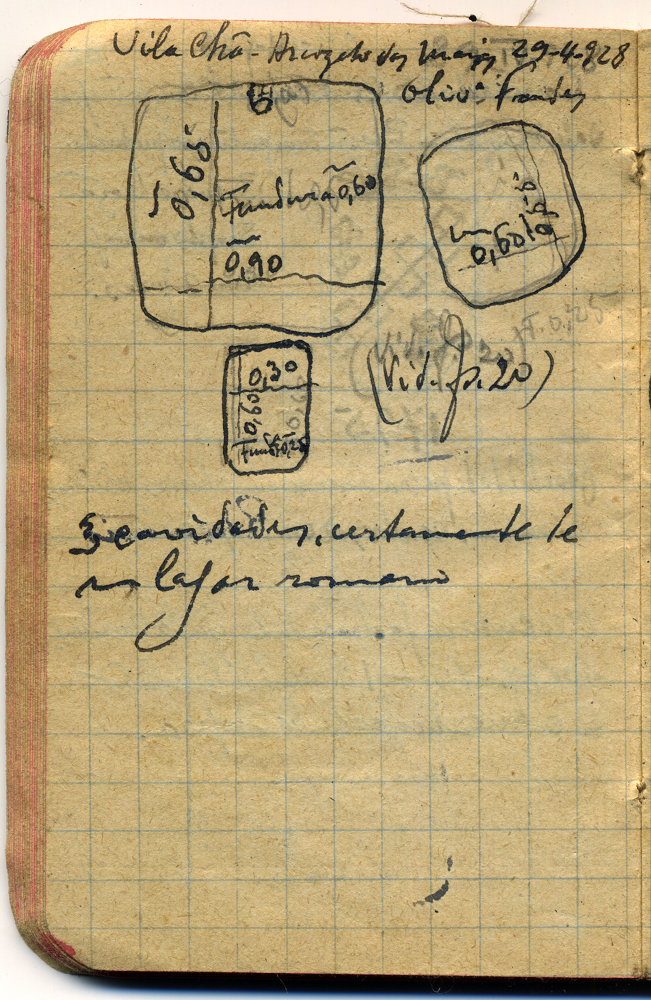 Vila Chã - Arcozelo das Maias 29-4-928
Olivª Frades
0,65
Fundura 0,60
0,90
0,60
0,55
0,30
0,60
Fund. 0,20
(Vid. p. 20)
3 cavidades, certamente de
um lagar romano